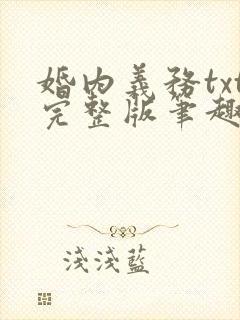 婚內義務txt
完整版筆趣
淺淺藍